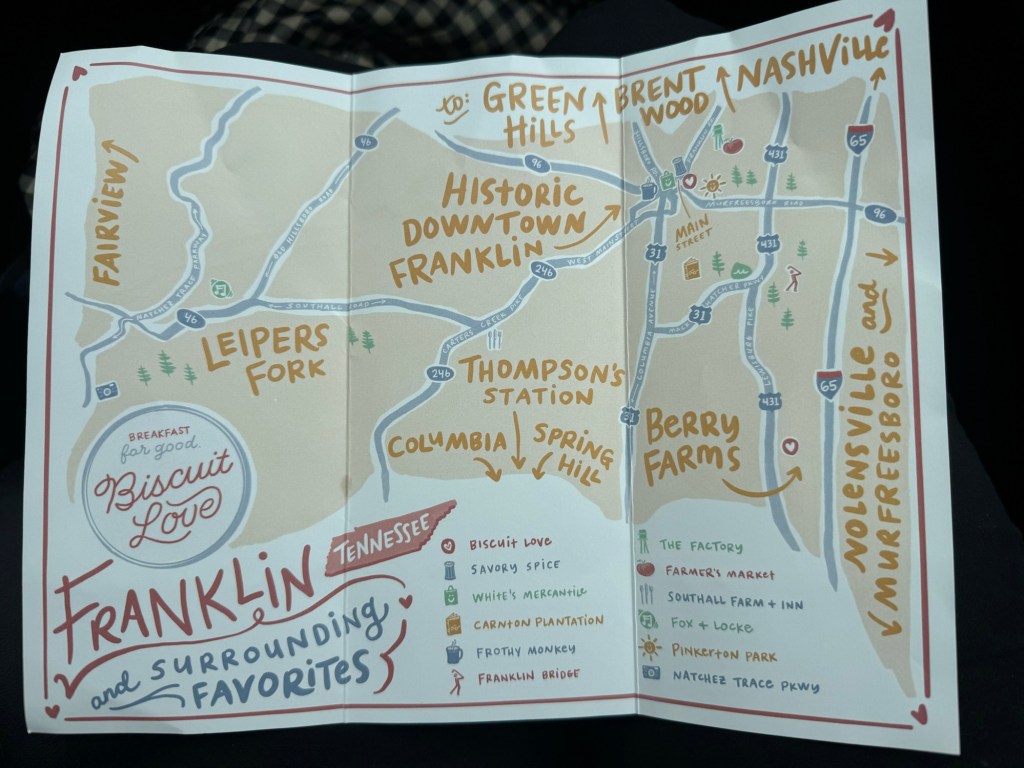 to: GREEN HILLS
BRENT WOOD
NASHVILLE
FAIRVIEW
46
96
431
65
HISTORIC
DOWNTOWN
FRANKLIN
MAIN
STREET
MURFREESBORO ROAD
96
NATCHEZ TRACE PARKWAY
OLD HILLSBORO ROAD
WEST MAIN STREET
246
31
431
46
SOUTHALL ROAD
CARTERS CREEK PIKE
31
COLUMBIA AVENUE
LEWISBURG PIKE
LEIPERS
FORK
246
THOMPSON'S
STATION
65
431
31
COLUMBIA
SPRING
HILL
BERRY
FARMS
NOLENSVILLE and
MURFREESBORO
BREAKFAST
for good.
Biscuit
Love
FRANKLIN
TENNESSEE
and SURROUNDING
FAVORITES
BISCUIT LOVE
SAVORY SPICE
WHITE'S MERCANTILE
CARNTON PLANTATION
FROTHY MONKEY
FRANKLIN BRIDGE
THE FACTORY
FARMER'S MARKET
SOUTHALL FARM + INN
FOX + LOCKE
PINKERTON PARK
NATCHEZ TRACE PKWY